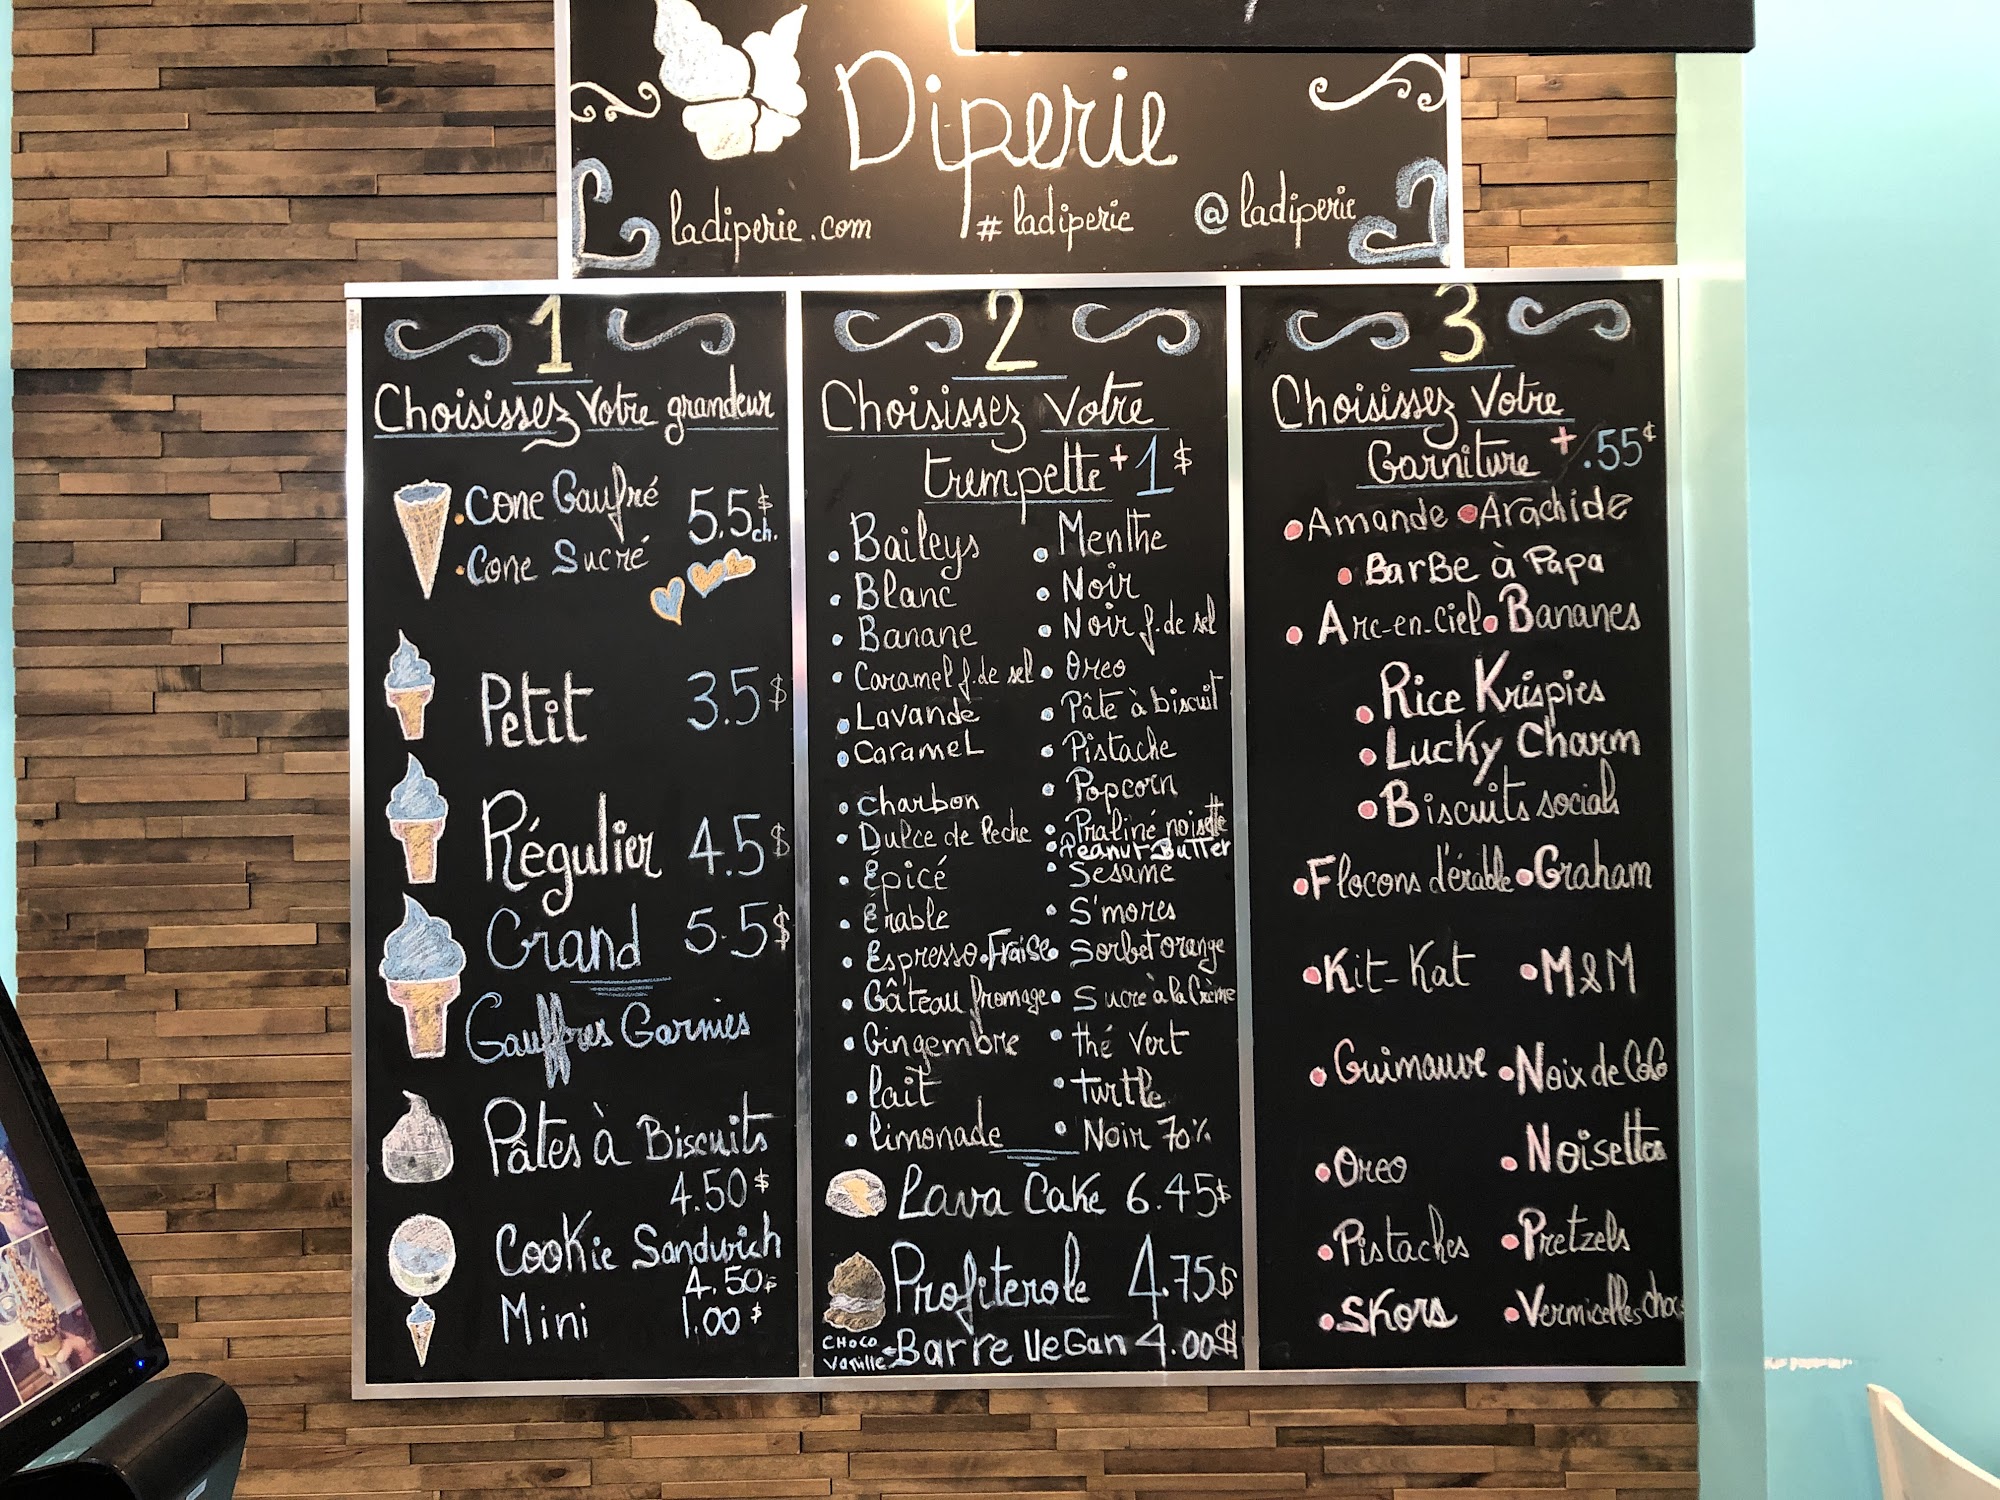 Diperie
ladiperie.com # ladiperie @ladiperie
1
Choisissez Votre grandeur
• Cone Gaufré 5.5$ ch.
• Cone Sucré
Petit 3.5$
Régulier 4.5$
Grand 5.5$
Gauffres Garnies
Pâtes à Biscuits
4.50$
Cookie Sandwich
4.50$
Mini 1.00$
2
Choisissez Votre
trempette + 1$
• Baileys • Menthe
• Blanc • Noir
• Banane • Noir f. de sel
• Caramel f. de sel • Oreo
• Lavande • Pâte à biscuit
• Caramel • Pistache
• Charbon • Popcorn
• Dulce de leche • Praliné noisette
• Peanut Butter
• Épicé • Sesame
• Erable • S'mores
• Espresso • Fraise • Sorbet orange
• Gâteau fromage • Sucre à la Crème
• Gingembre • thé Vert
• lait • turtle
• limonade • Noir 70%
Lava Cake 6.45$
Profiterole 4.75$
CHOCO Vanille Barre Vegan 4.00$
3
Choisissez Votre
Garniture + .55¢
• Amande • Arachide
• Barbe à Papa
• Arc-en-Ciel • Bananes
• Rice Krispies
• Lucky Charm
• Biscuits social
• Flocons d'érable • Graham
• Kit-Kat • M&M
• Guimauve • Noix de CoCo
• Oreo • Noisettes
• Pistaches • Pretzels
• Skors • Vermicelles choc